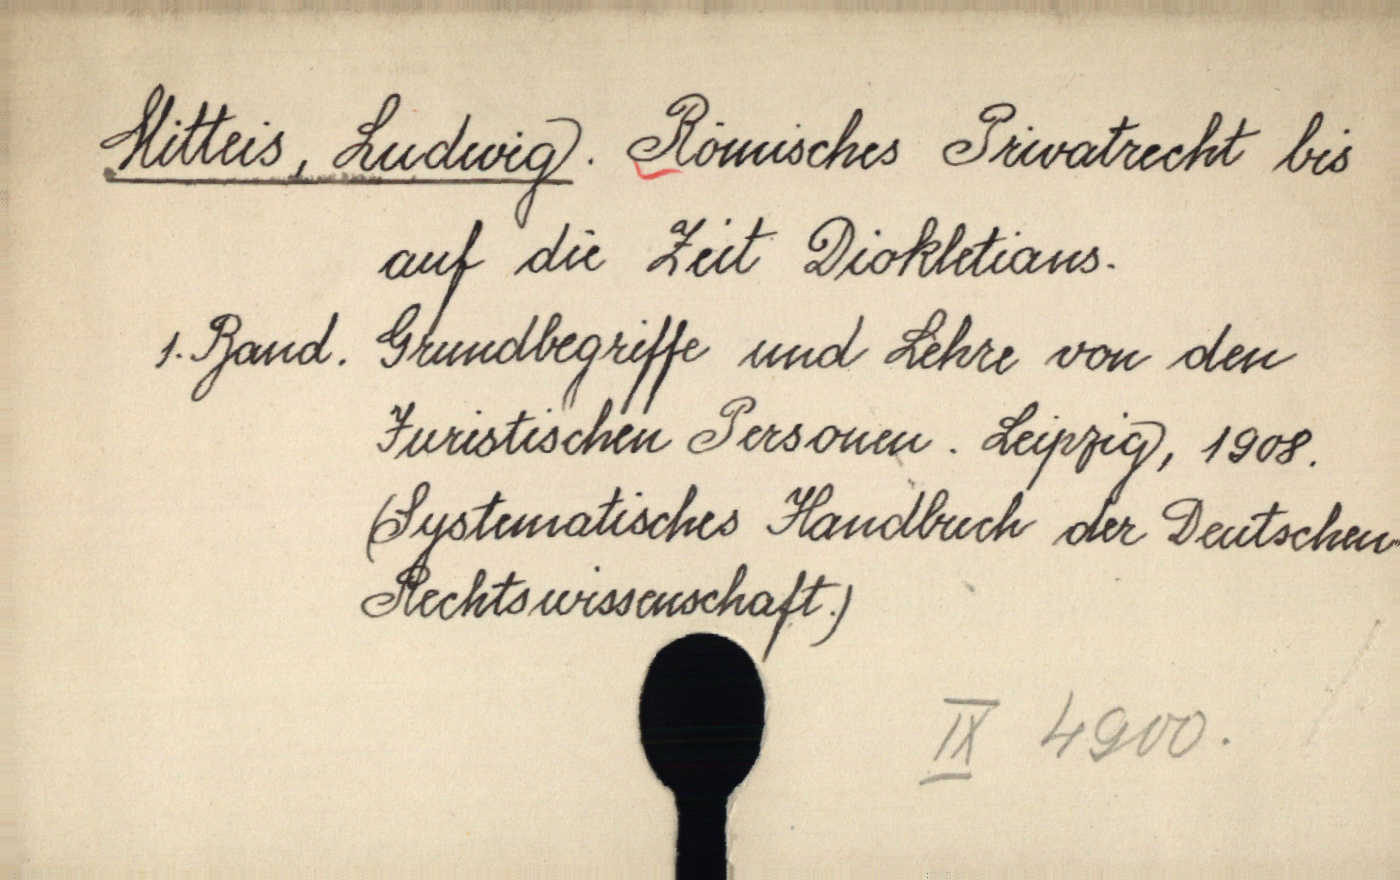 Mitteis, Ludwig. Römisches Privatrecht bis
auf die Zeit Diokletians.
1. Band. Grundbegriffe und Lehre von den
Juristischen Personen. Leipzig, 1908.
(Systematisches Handbuch der Deutschen
Rechtswissenschaft.)
IX 4900.